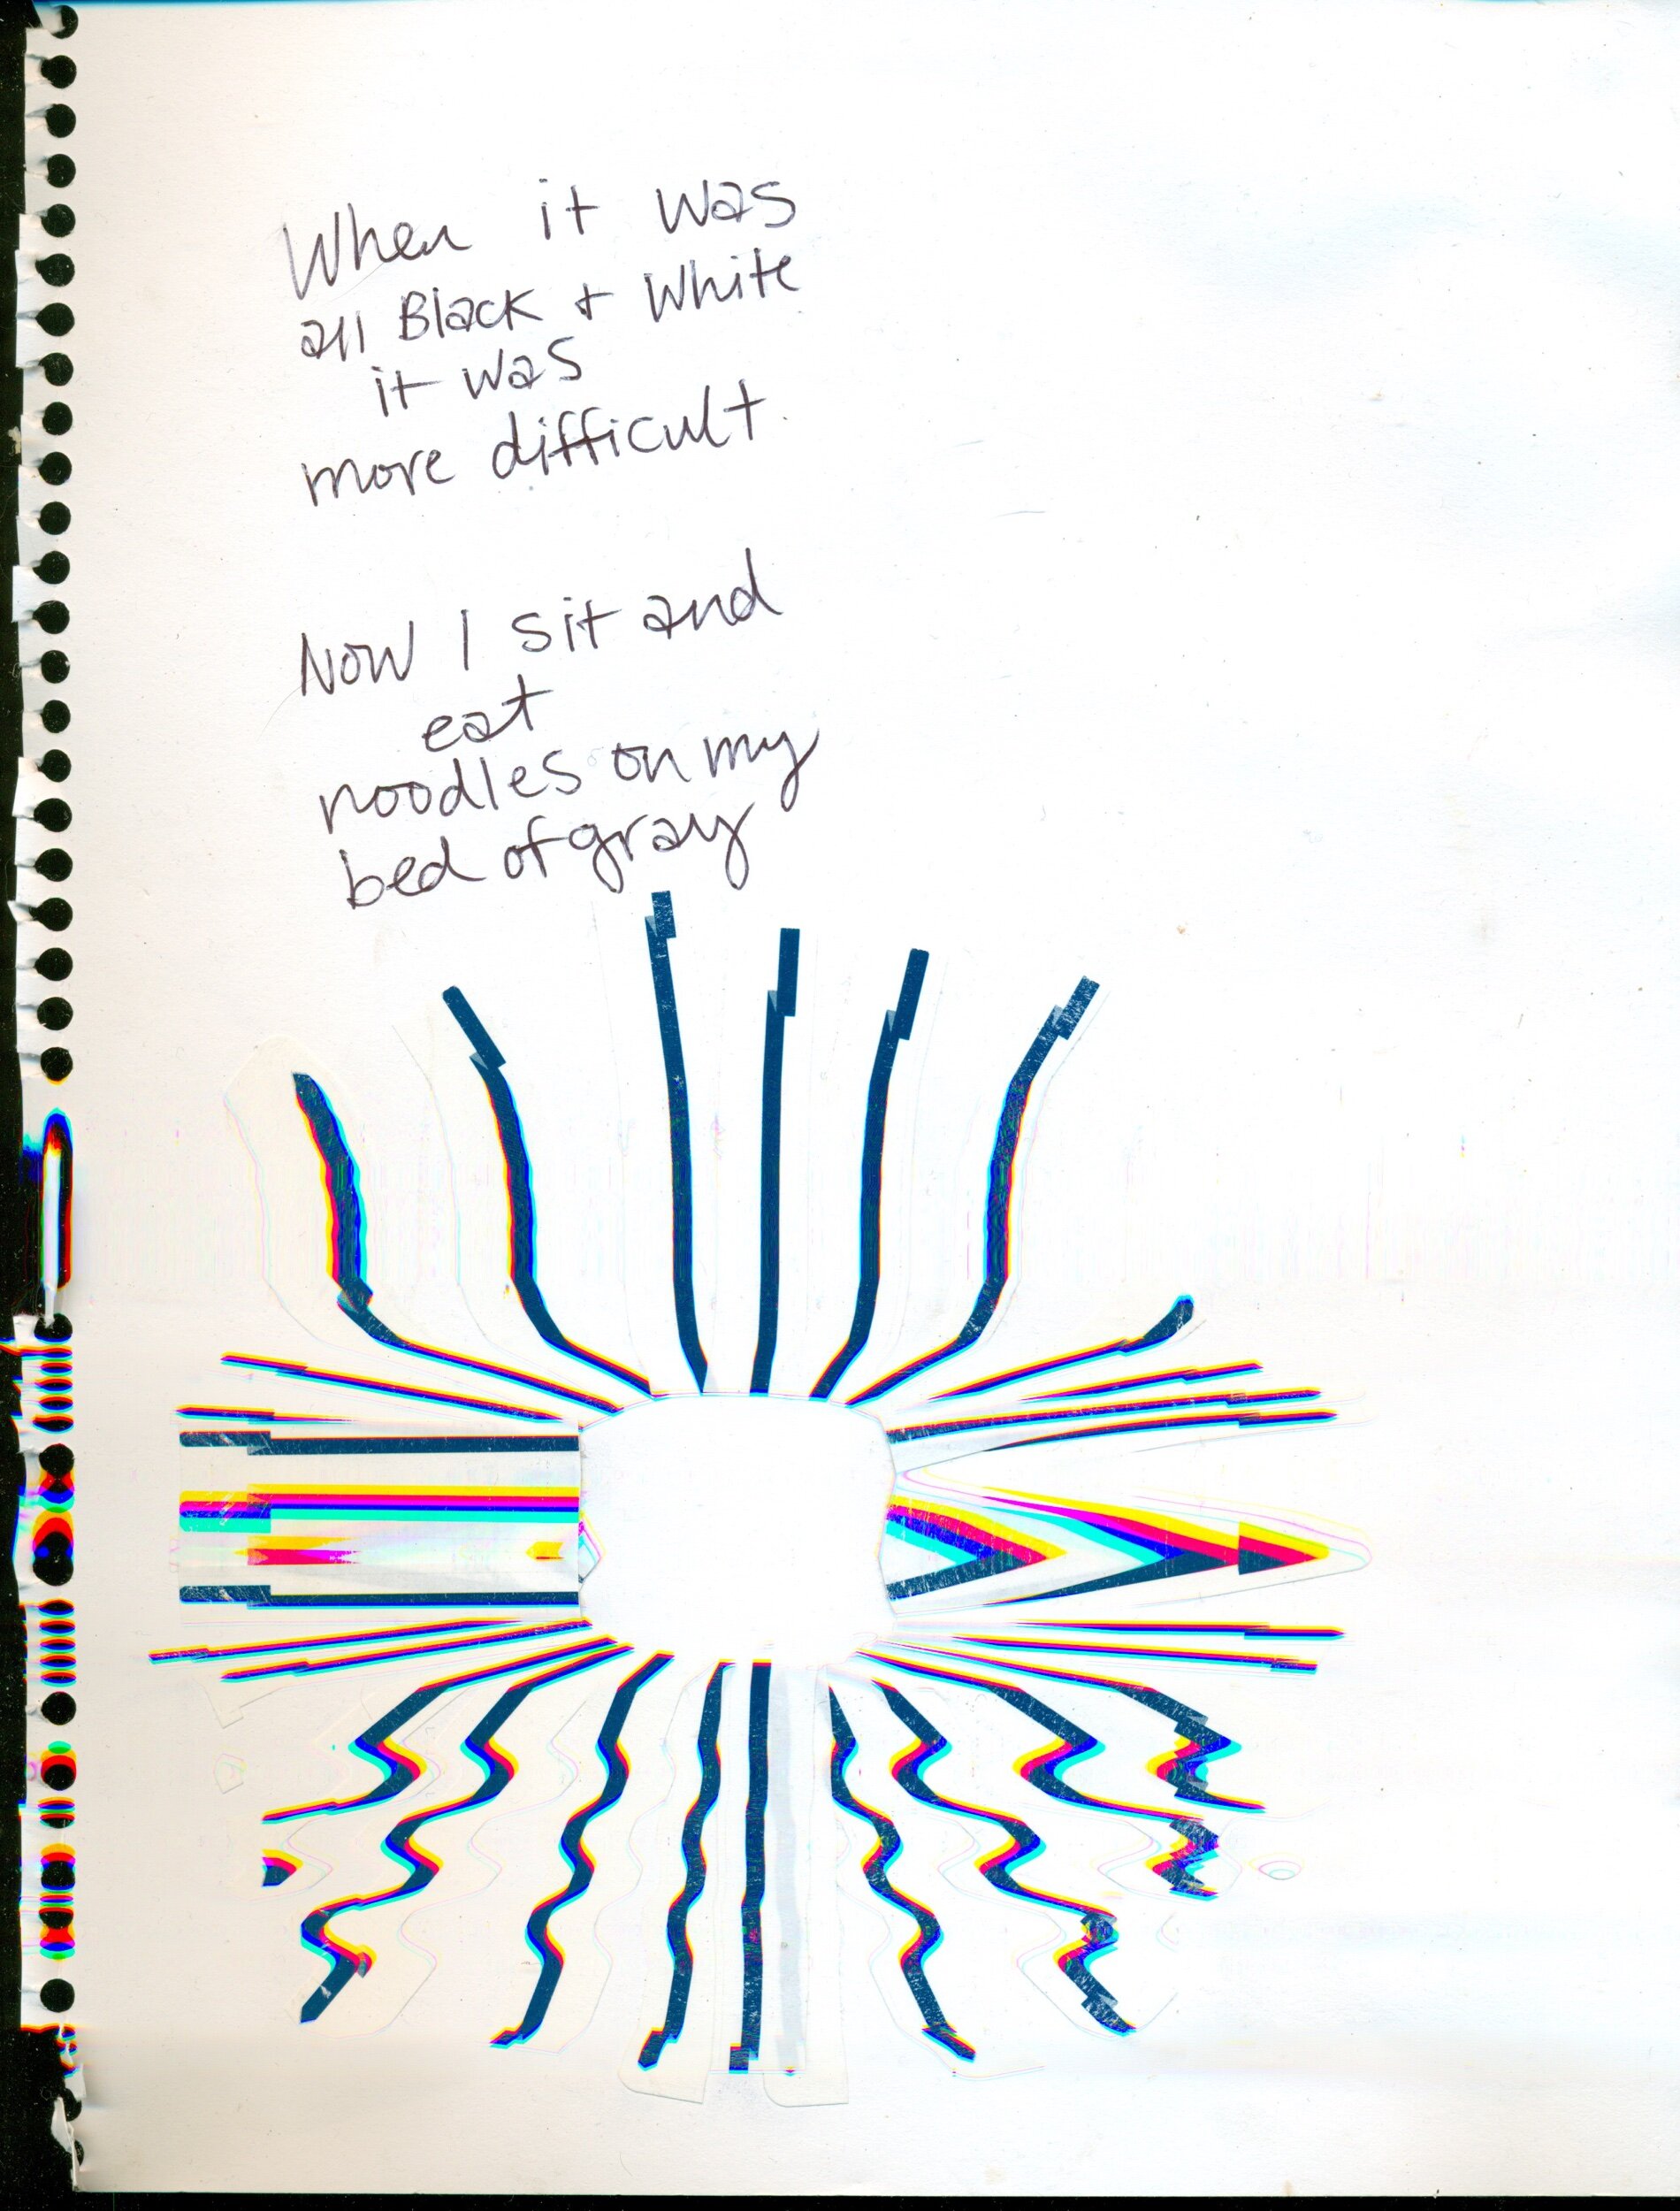 When it was
all Black + White
it was
more difficult.
Now I sit and
eat
noodles on my
bed of gray